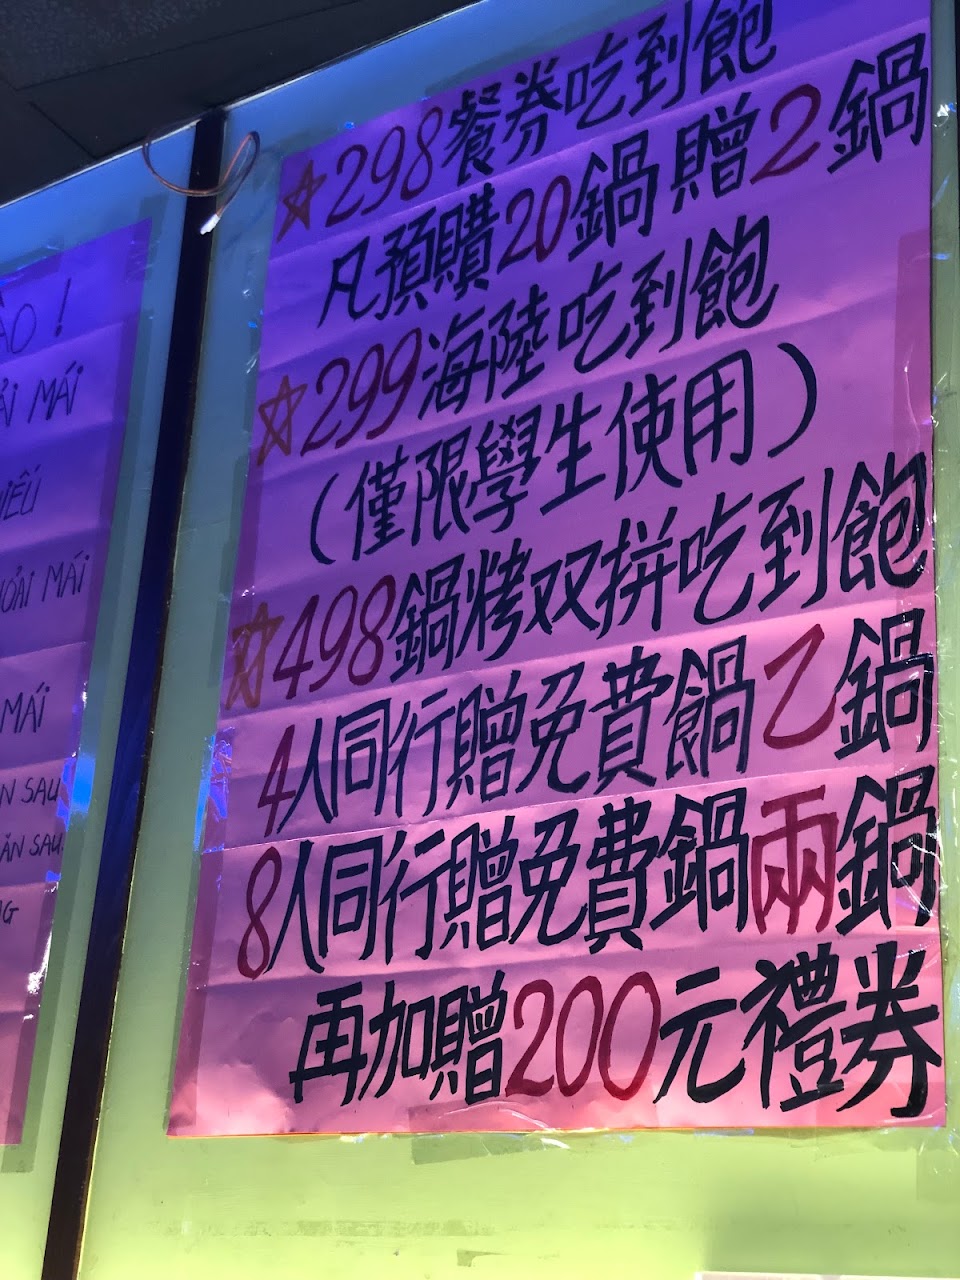 ÀO !
ẢI MÁI
HIẾU
HOẢI MÁI
MÁI
N SAU
ĂN SAU.
NG
☆298餐券吃到飽
凡預購20鍋贈2鍋
☆299海陸吃到飽
(僅限學生使用)
☆498鍋烤双拼吃到飽
4人同行贈免費鍋乙鍋
8人同行贈免費鍋兩鍋
再加贈200元禮券